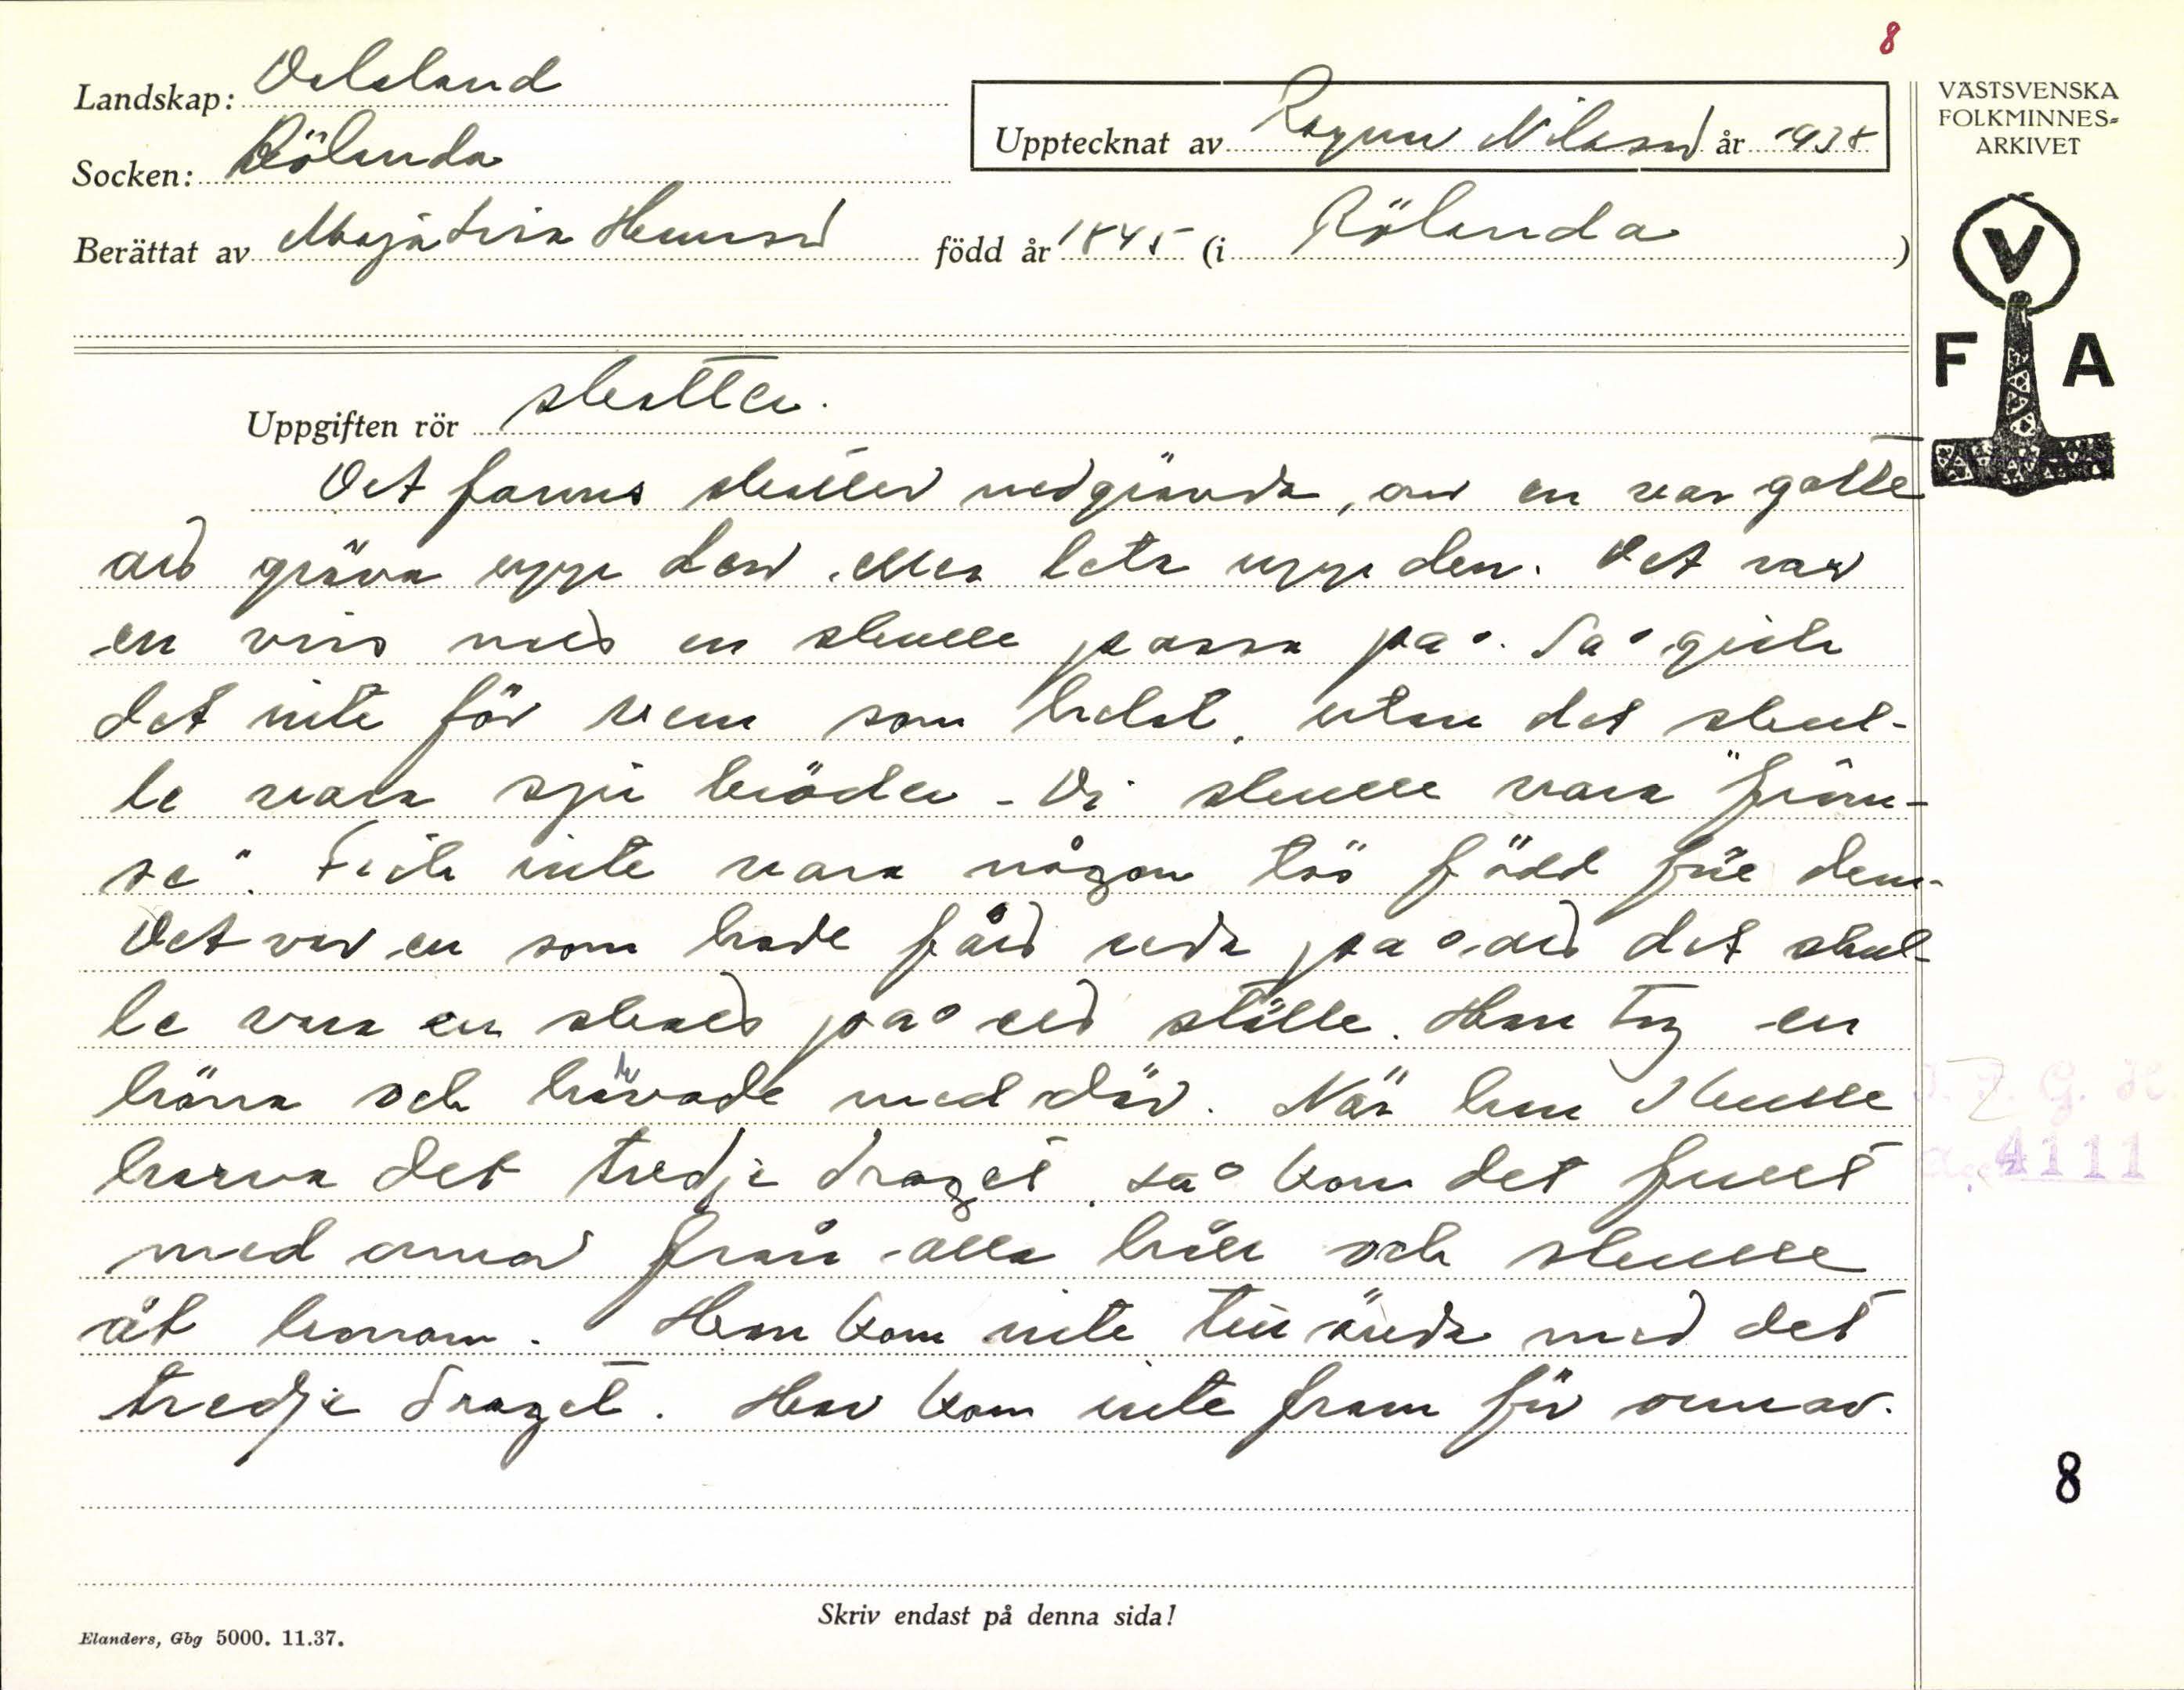 8
Landskap: Dalsland
Socken: Rölanda
Upptecknat av Ragnar Nilsson år 1938
VÄSTSVENSKA
FOLKMINNES=
ARKIVET
Berättat av Maja Lisa Hansson född år 1845 (i Rölanda)
V
F A
Uppgiften rör skatter.
Det fanns skatter nedgrävda, om en var go
att gräva upp den, eller leta upp den. Det var
en viss natt en skulle passa på. Så gick
det inte för vem som helst, utan det skul-
le vara sju bröder. Di skulle vara "främ-
se". Fick inte vara någon tös född före dem.
Det var en som hade fått reda på att det skul-
le vara en skatt på ett ställe. Han tog en
häna och harvade med där. När han skulle
harva det tredje draget, så kom det fullt
med ormar från alla håll och skulle
åt honom. Han kom inte till ända med det
tredje draget. Han kom inte fram för ormar.
4111
8
Skriv endast på denna sida!
Elanders, Gbg 5000. 11.37.